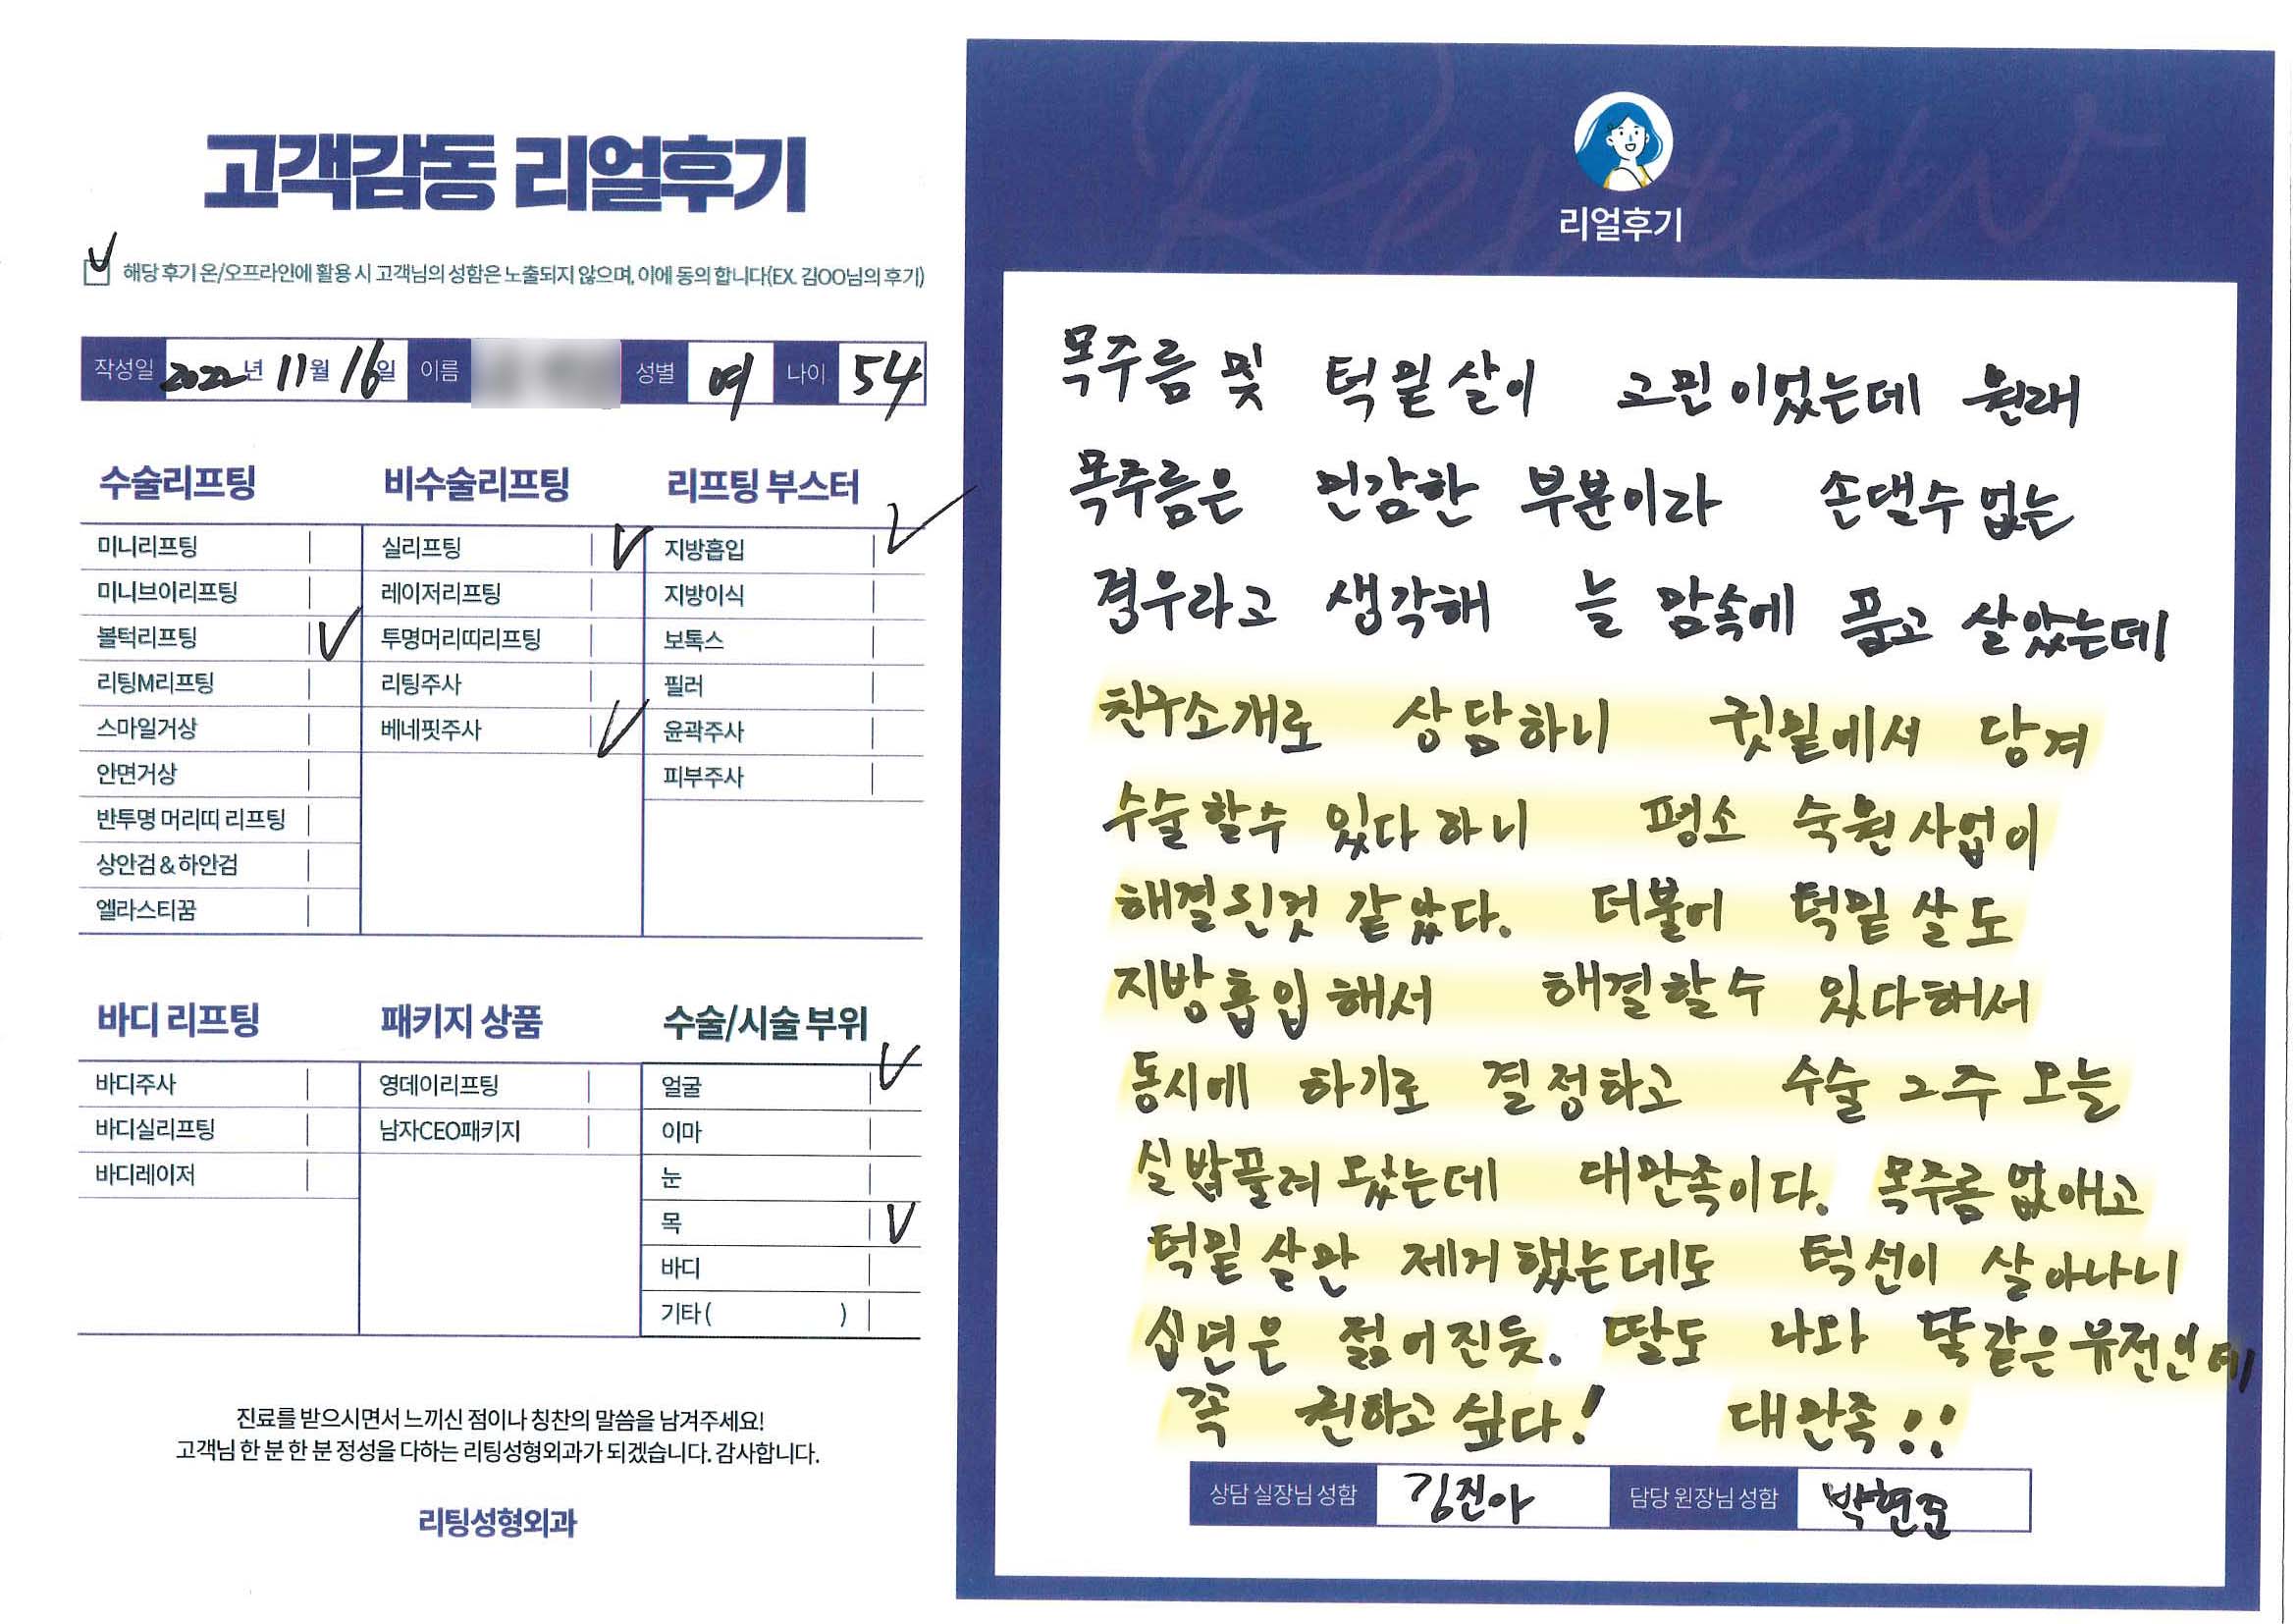 고객감동 리얼후기
해당 후기 온/오프라인에 활용 시 고객님의 성함은 노출되지 않으며, 이에 동의 합니다(EX. 김OO님의 후기)
작성일 2022년 11월 16일 이름 성별 여 나이 54
수술리프팅
미니리프팅
미니브이리프팅
볼턱리프팅
리팅M리프팅
스마일거상
안면거상
반투명 머리띠 리프팅
상안검 & 하안검
엘라스티꿈
비수술리프팅
실리프팅
레이저리프팅
투명머리띠리프팅
리팅주사
베네핏주사
리프팅 부스터
지방흡입
지방이식
보톡스
필러
윤곽주사
피부주사
바디 리프팅
바디주사
바디실리프팅
바디레이저
패키지 상품
영데이리프팅
남자CEO패키지
수술/시술 부위
얼굴
이마
눈
목
바디
기타 ( )
진료를 받으시면서 느끼신 점이나 칭찬의 말씀을 남겨주세요!
고객님 한 분 한 분 정성을 다하는 리팅성형외과가 되겠습니다. 감사합니다.
리팅성형외과
Review
리얼후기
목주름 및 턱밑살이 고민이었는데 원래
목주름은 민감한 부분이라 손댈수 없는
경우라고 생각해 늘 맘속에 품고 살았는데
친구소개로 상담하니 귓밑에서 당겨
수술할수 있다하니 평소 숙원사업이
해결된것 같았다. 더불어 턱밑살도
지방흡입해서 해결할수 있다해서
동시에 하기로 결정하고 수술 그주 오늘
실밥풀려 왔는데 대만족이다. 목주름 없애고
턱밑살만 제거했는데도 턱선이 살아나니
십년은 젊어진듯. 딸도 나와 똑같은 유전인데
꼭 권하고 싶다! 대만족!!
상담 실장님 성함 김진아 담당 원장님 성함 박현준